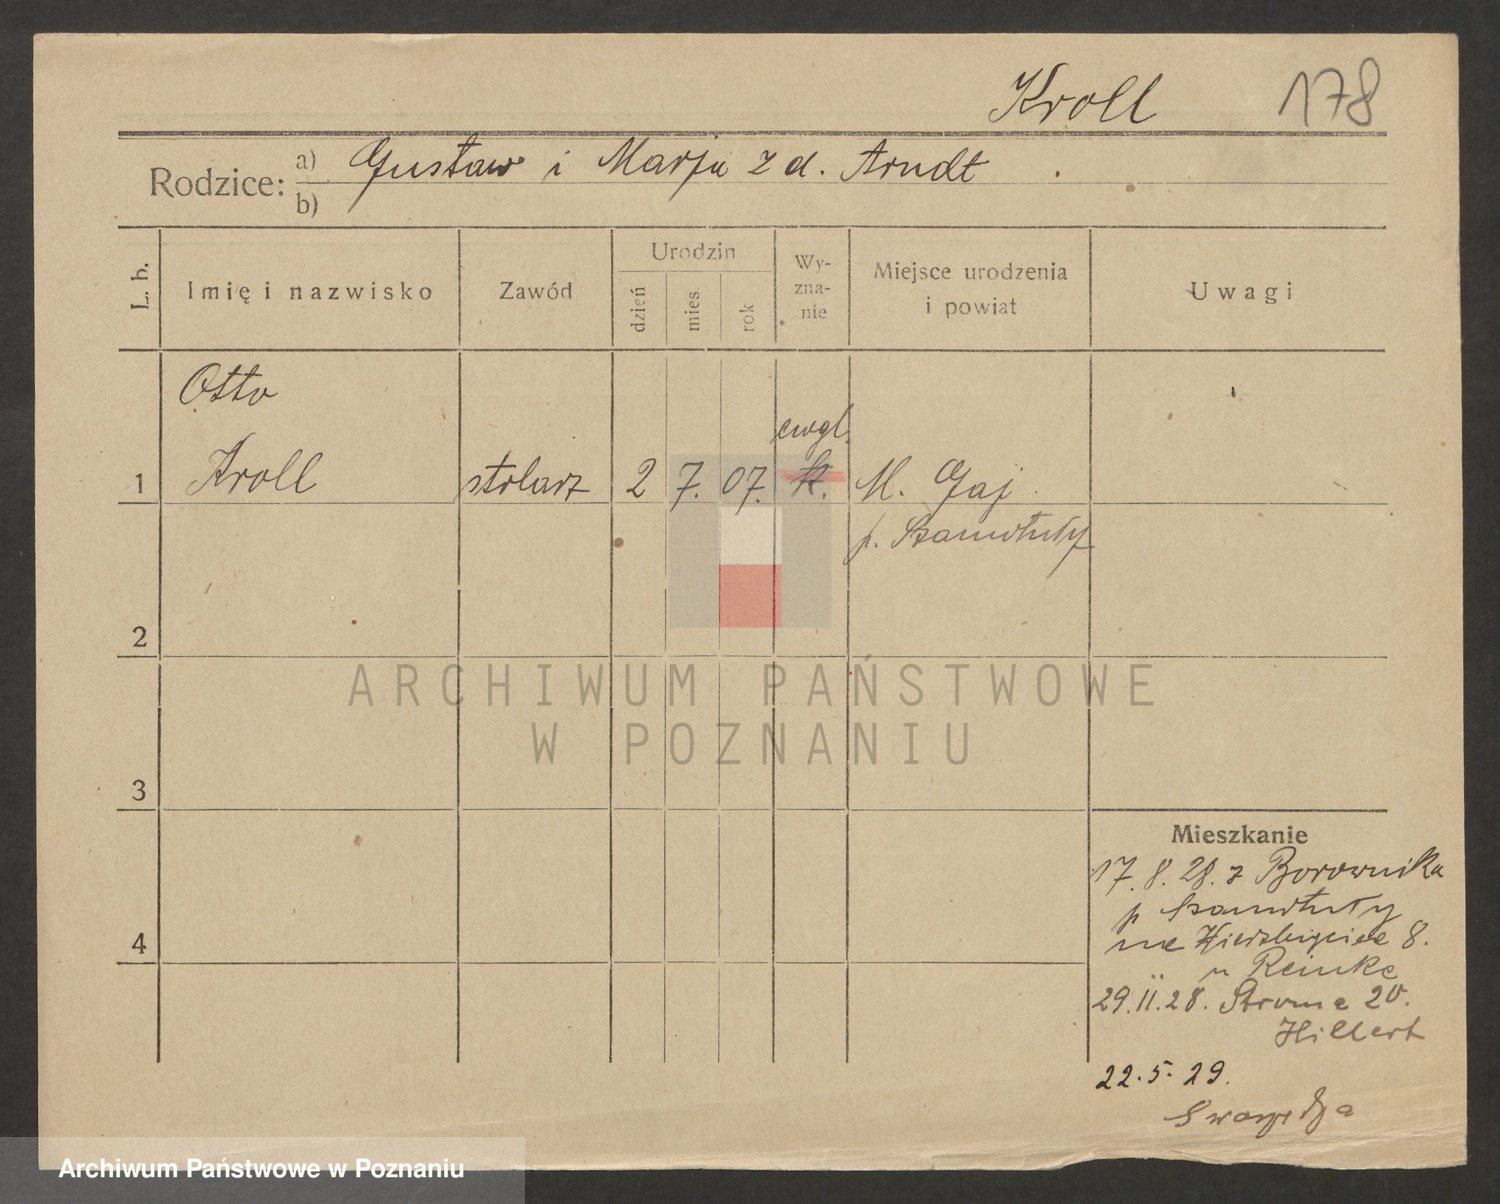 Kroll 178
Rodzice: a) Gustaw i Marja z d. Arndt
b)
L. b. Imię i nazwisko Zawód Urodzin dzień mies. rok Wyznanie Miejsce urodzenia i powiat Uwagi
Otto
ewgl.
1 Kroll stolarz 2 7. 07. k. M. Gaj
p. Szamotuły
2
ARCHIWUM PAŃSTWOWE
W POZNANIU
3
Mieszkanie
17. 8. 28. z Borownika
p Szamotuły
4
na 8.
u Reinke
29.11.28. Stroma 20.
Hillert
22. 5. 29.
Swarzędza
Archiwum Państwowe w Poznaniu